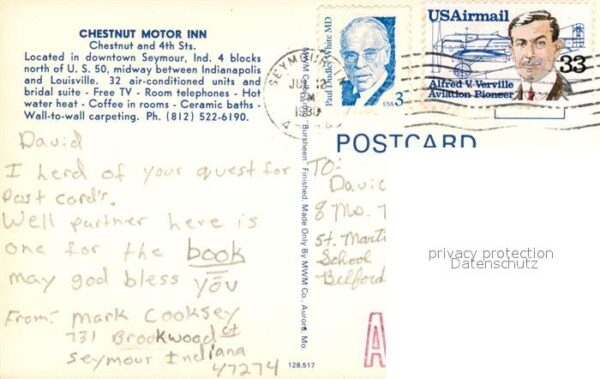 CHESTNUT MOTOR INN
Chestnut and 4th Sts.
Located in downtown Seymour, Ind. 4 blocks
north of U. S. 50, midway between Indianapolis
and Louisville. 32 air-conditioned units and
bridal suite - Free TV - Room telephones - Hot
water heat - Coffee in rooms - Ceramic baths -
Wall-to-wall carpeting. Ph. (812) 522-6190.
David
I herd of your quest for
Post card's.
Well partner here is
one for the book
may god bless you
From: Mark Cooksey
731 Brookwood ct
Seymour Indiana
47274
Bursheen Finished. Made Only By MWM Co., Aurora, Mo.
128.517
Paul Dudley White MD
USA 3
USAirmail
33
Alfred V. Verville
Aviation Pioneer
SEYMOUR
POSTCARD
TO:
Davi
8 Mo.
St. Marti
School
Belford
A
privacy protection
Datenschutz